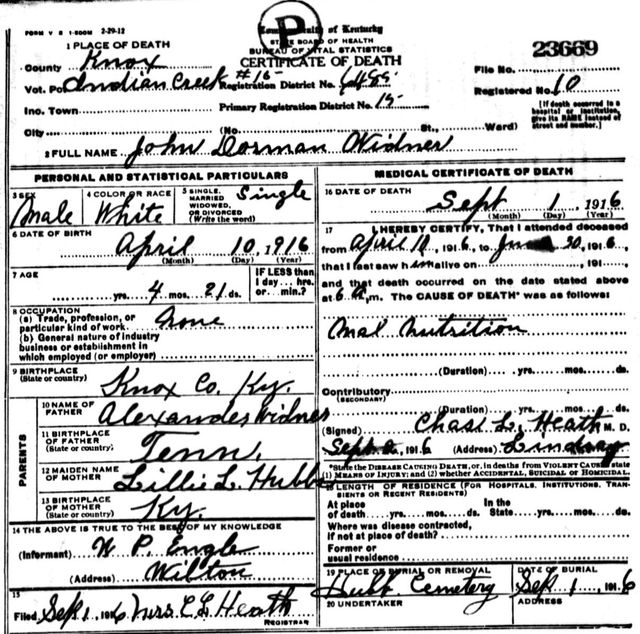 FORM V S 1-500M 2-29-12
Commonwealth of Kentucky
P
STATE BOARD OF HEALTH
BUREAU OF VITAL STATISTICS
CERTIFICATE OF DEATH
23669
1 PLACE OF DEATH
County Knox
Vot. Pct Indian Creek #15- Registration District No. 6485
File No.
Registered No. 10
Inc. Town Primary Registration District No. 15-
[If death occurred in a hospital or institution, give its NAME instead of street and number.]
City (No. St., Ward)
2 FULL NAME John Dorman Widner
PERSONAL AND STATISTICAL PARTICULARS
3 SEX Male
4 COLOR OR RACE White
5 SINGLE, MARRIED WIDOWED, OR DIVORCED (Write the word) Single
6 DATE OF BIRTH April 10, 1916
(Month) (Day) (Year)
7 AGE
yrs. 4 mos. 21 ds.
IF LESS than 1 day ... hrs. or ... min.?
8 OCCUPATION
(a) Trade, profession, or particular kind of work None
(b) General nature of industry business or establishment in which employed (or employer)
9 BIRTHPLACE
(State or country) Knox Co. Ky.
PARENTS
10 NAME OF FATHER Alexander Widner
11 BIRTHPLACE OF FATHER (State or country) Tenn.
12 MAIDEN NAME OF MOTHER Lillie L. Hubbs
13 BIRTHPLACE OF MOTHER (State or country) Ky.
14 THE ABOVE IS TRUE TO THE BEST OF MY KNOWLEDGE
(Informant) W. P. Engle
(Address) Wilton
15
Filed Sept 1, 1916 Miss C L Heath
REGISTRAR
MEDICAL CERTIFICATE OF DEATH
16 DATE OF DEATH
Sept 1, 1916
(Month) (Day) (Year)
17 I HEREBY CERTIFY, That I attended deceased
from April 10, 1916, to 20, 1916,
that I last saw him alive on , 191 ,
and that death occurred on the date stated above
at 6 m. The CAUSE OF DEATH* was as follows:
Mal Nutrition
(Duration) yrs. mos. ds.
Contributory
(SECONDARY)
(Duration) yrs. mos. ds.
(Signed) Chas. L. Heath M. D.
Sept 2, 1916 (Address) Lindsay
*State the DISEASE CAUSING DEATH, or, in deaths from VIOLENT CAUSES state (1) MEANS OF INJURY; and (2) whether ACCIDENTAL, SUICIDAL or HOMICIDAL.
18 LENGTH OF RESIDENCE (FOR HOSPITALS, INSTITUTIONS, TRANSIENTS OR RECENT RESIDENTS)
At place of death yrs. mos. ds. In the State yrs. mos. ds.
Where was disease contracted, if not at place of death?
Former or usual residence
19 PLACE OF BURIAL OR REMOVAL Hubb Cemetery
DATE OF BURIAL Sept 1, 1916
20 UNDERTAKER
ADDRESS